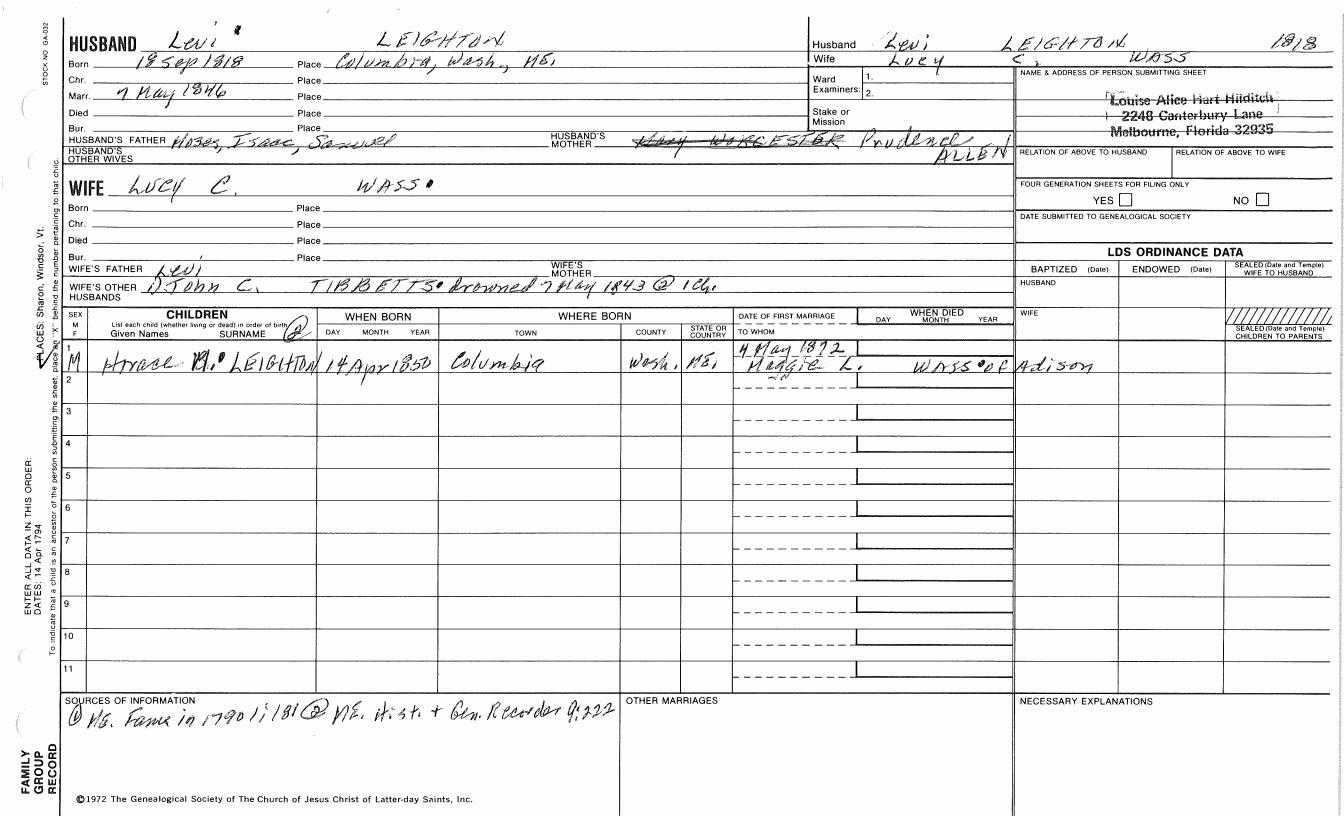 STOCK NO GA-032
HUSBAND Levi LEIGHTON
Born 18 Sep 1818 Place Columbia, Wash., ME.
Chr. Place
Marr. 7 May 1846 Place
Died Place
Bur. Place
HUSBAND'S FATHER Moses, Isaac, Samuel HUSBAND'S MOTHER Mary WORCESTER Prudence ALLEN
HUSBAND'S OTHER WIVES
Husband Levi LEIGHTON 1818
Wife Lucy C. WASS
Ward Examiners: 1. 2.
Stake or Mission
NAME & ADDRESS OF PERSON SUBMITTING SHEET
Louise Alice Hart Hilditch
2248 Canterbury Lane
Melbourne, Florida 32935
RELATION OF ABOVE TO HUSBAND RELATION OF ABOVE TO WIFE
FOUR GENERATION SHEETS FOR FILING ONLY
YES NO
DATE SUBMITTED TO GENEALOGICAL SOCIETY
WIFE LUCY C. WASS
Born Place
Chr. Place
Died Place
Bur. Place
WIFE'S FATHER Levi WIFE'S MOTHER
WIFE'S OTHER HUSBANDS 1) John C. TIBBETTS drowned 7 May 1843 @ 1 Ch.
LDS ORDINANCE DATA
BAPTIZED (Date) ENDOWED (Date) SEALED (Date and Temple) WIFE TO HUSBAND
HUSBAND
WIFE
SEALED (Date and Temple) CHILDREN TO PARENTS
SEX M F
CHILDREN
List each child (whether living or dead) in order of birth
Given Names SURNAME 2
WHEN BORN
DAY MONTH YEAR
WHERE BORN
TOWN COUNTY STATE OR COUNTRY
DATE OF FIRST MARRIAGE
TO WHOM
WHEN DIED
DAY MONTH YEAR
1 M Horace M. LEIGHTON 14 Apr 1850 Columbia Wash. ME. 4 May 1872
Maggie L. WASS of Adison
2
3
4
5
6
7
8
9
10
11
SOURCES OF INFORMATION
1 ME. Fams in 1790 1:181 2 ME. Hist. + Gen. Recorder 9:222
OTHER MARRIAGES
NECESSARY EXPLANATIONS
©1972 The Genealogical Society of The Church of Jesus Christ of Latter-day Saints, Inc.
FAMILY
GROUP
RECORD
ENTER ALL DATA IN THIS ORDER:
DATES: 14 Apr 1794
PLACES: Sharon, Windsor, Vt.
To indicate that a child is an ancestor of the person submitting the sheet, place an "X" behind the number pertaining to that child.